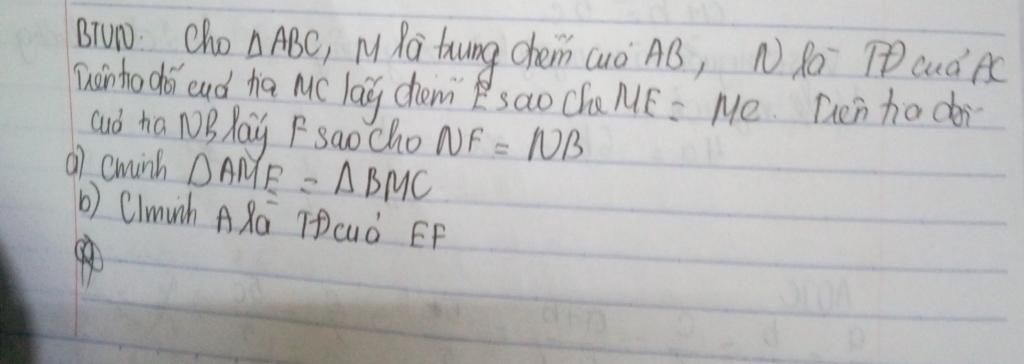 BTVN. Cho ΔABC, M là trung điểm của AB, N là TĐ của AC
Trên tia đối của tia MC lấy điểm E sao cho ME = MC. Trên tia đối
của tia NB lấy F sao cho NF = NB
a) Cminh ΔAME = ΔBMC
b) Cminh A là TĐ của EF